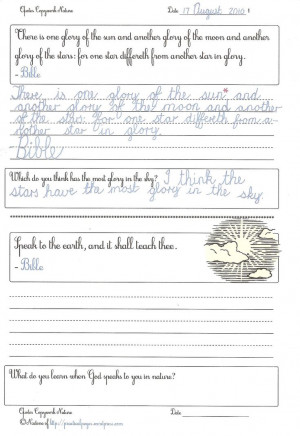 Quotes Copywork Nature Date 17 August 2010
There is one glory of the sun and another glory of the moon and another
glory of the stars: for one star differeth from another star in glory.
- Bible
There is one glory of the sun and
another glory of the moon and another
of the stars: for one star differeth from a-
nother star in glory.
Bible
Which do you think has the most glory in the sky? I think the
stars have the most glory in the sky.
Speak to the earth, and it shall teach thee.
- Bible
What do you learn when God speaks to you in nature?
Quotes Copywork Nature Date
© Nadene of http://practicalpages.wordpress.com